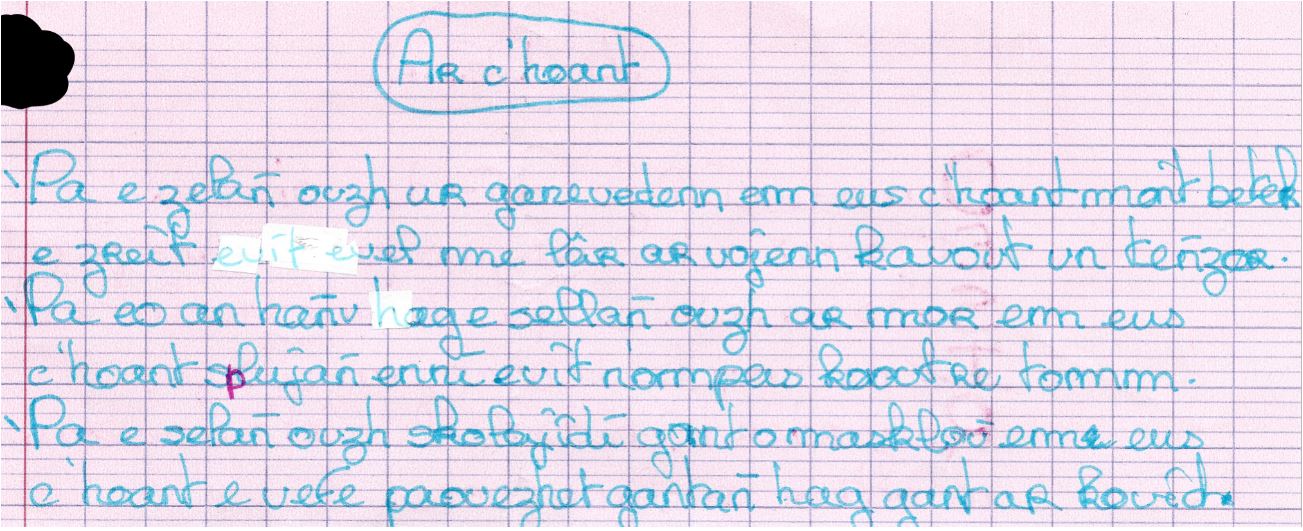 Ar c'hoant
Pa e zelañ ouzh ur ganevedenn em eus c'hoant mont betek
e zreit evit evel me lâr ar vojenn kavout un teñzor.
Pa eo an hañv hag e sellañ ouzh ar mor em eus
c'hoant splujañ enni evit nompas kaout re tomm.
Pa e selañ ouzh skolajidi gant o maskloù em eus
c'hoant e vefe paouezhet gantañ hag gant ar kovid.